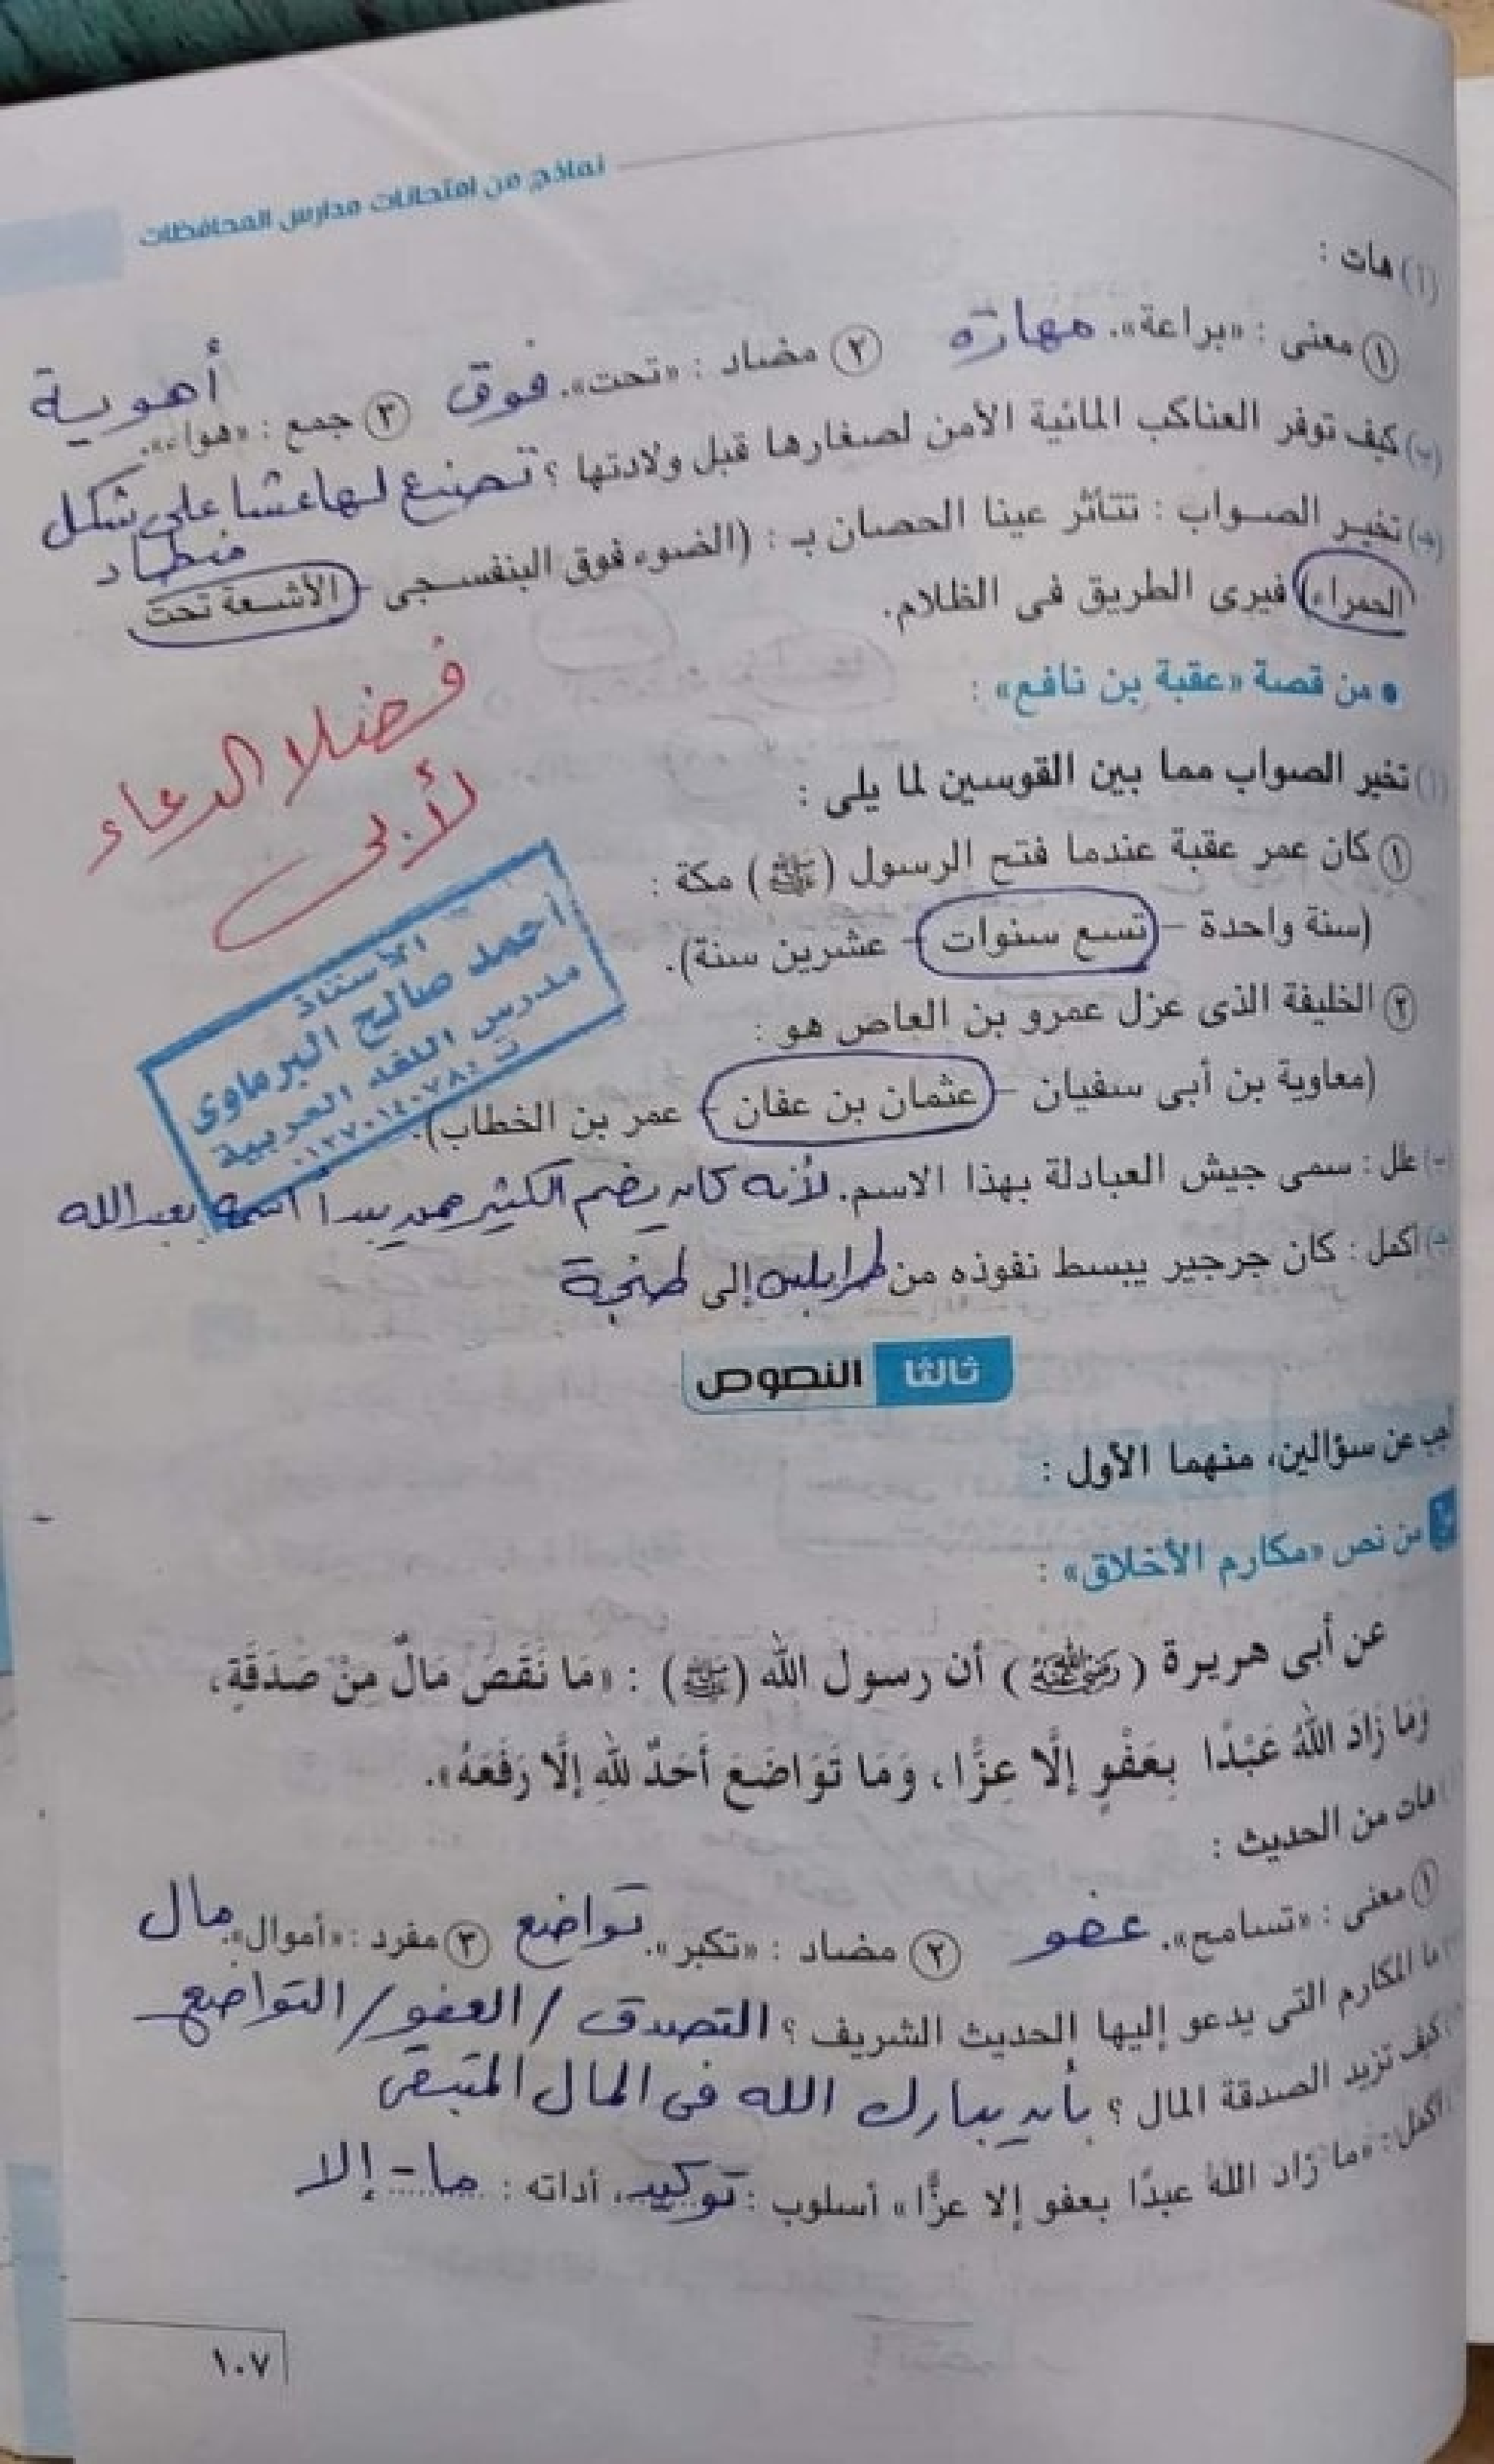 نماذج من امتحانات مدارس المحافظات
(أ) هات :
① معنى : «براعة». مهارة ② مضاد : «تحت». فوق ③ جمع : «هواء». أهوية
(ب) كيف توفر العناكب المائية الأمن لصغارها قبل ولادتها ؟ تصنع لها عشا على شكل منطاد
(جـ) تخير الصواب : تتأثر عينا الحصان بـ : (الضوء فوق البنفسجى - الأشعة تحت
الحمراء) فيرى الطريق فى الظلام.
• من قصة «عقبة بن نافع» :
(أ) تخير الصواب مما بين القوسين لما يلى :
① كان عمر عقبة عندما فتح الرسول (ﷺ) مكة :
(سنة واحدة - تسع سنوات - عشرين سنة).
② الخليفة الذى عزل عمرو بن العاص هو :
(معاوية بن أبى سفيان - عثمان بن عفان - عمر بن الخطاب).
علل : سمى جيش العبادلة بهذا الاسم. لأنه كان يضم الكثير ممن يبدأ اسمه بعبد الله
أكمل : كان جرجير يبسط نفوذه من طرابلس إلى طنجة
فضلا الدعاء
لأبى
الأستاذ
أحمد صالح البرماوى
مدرس اللغة العربية
ثالثا النصوص
أجب عن سؤالين، منهما الأول :
من نص «مكارم الأخلاق» :
عن أبى هريرة (رضي الله عنه) أن رسول الله (ﷺ) : «مَا نَقَصَ مَالٌ مِنْ صَدَقَةٍ،
وَمَا زَادَ اللهُ عَبْدًا بِعَفْوٍ إِلَّا عِزًّا، وَمَا تَوَاضَعَ أَحَدٌ للهِ إِلَّا رَفَعَهُ».
هات من الحديث :
① معنى : «تسامح». عفو ② مضاد : «تكبر». تواضع ③ مفرد : «أموال». مال
ما المكارم التى يدعو إليها الحديث الشريف ؟ التصدق / العفو / التواضع
كيف تزيد الصدقة المال ؟ بأن يبارك الله فى المال المتبقى
أكمل : «ما زاد الله عبدًا بعفو إلا عزًّا» أسلوب : توكيد، أداته : ما - إلا
١٠٧